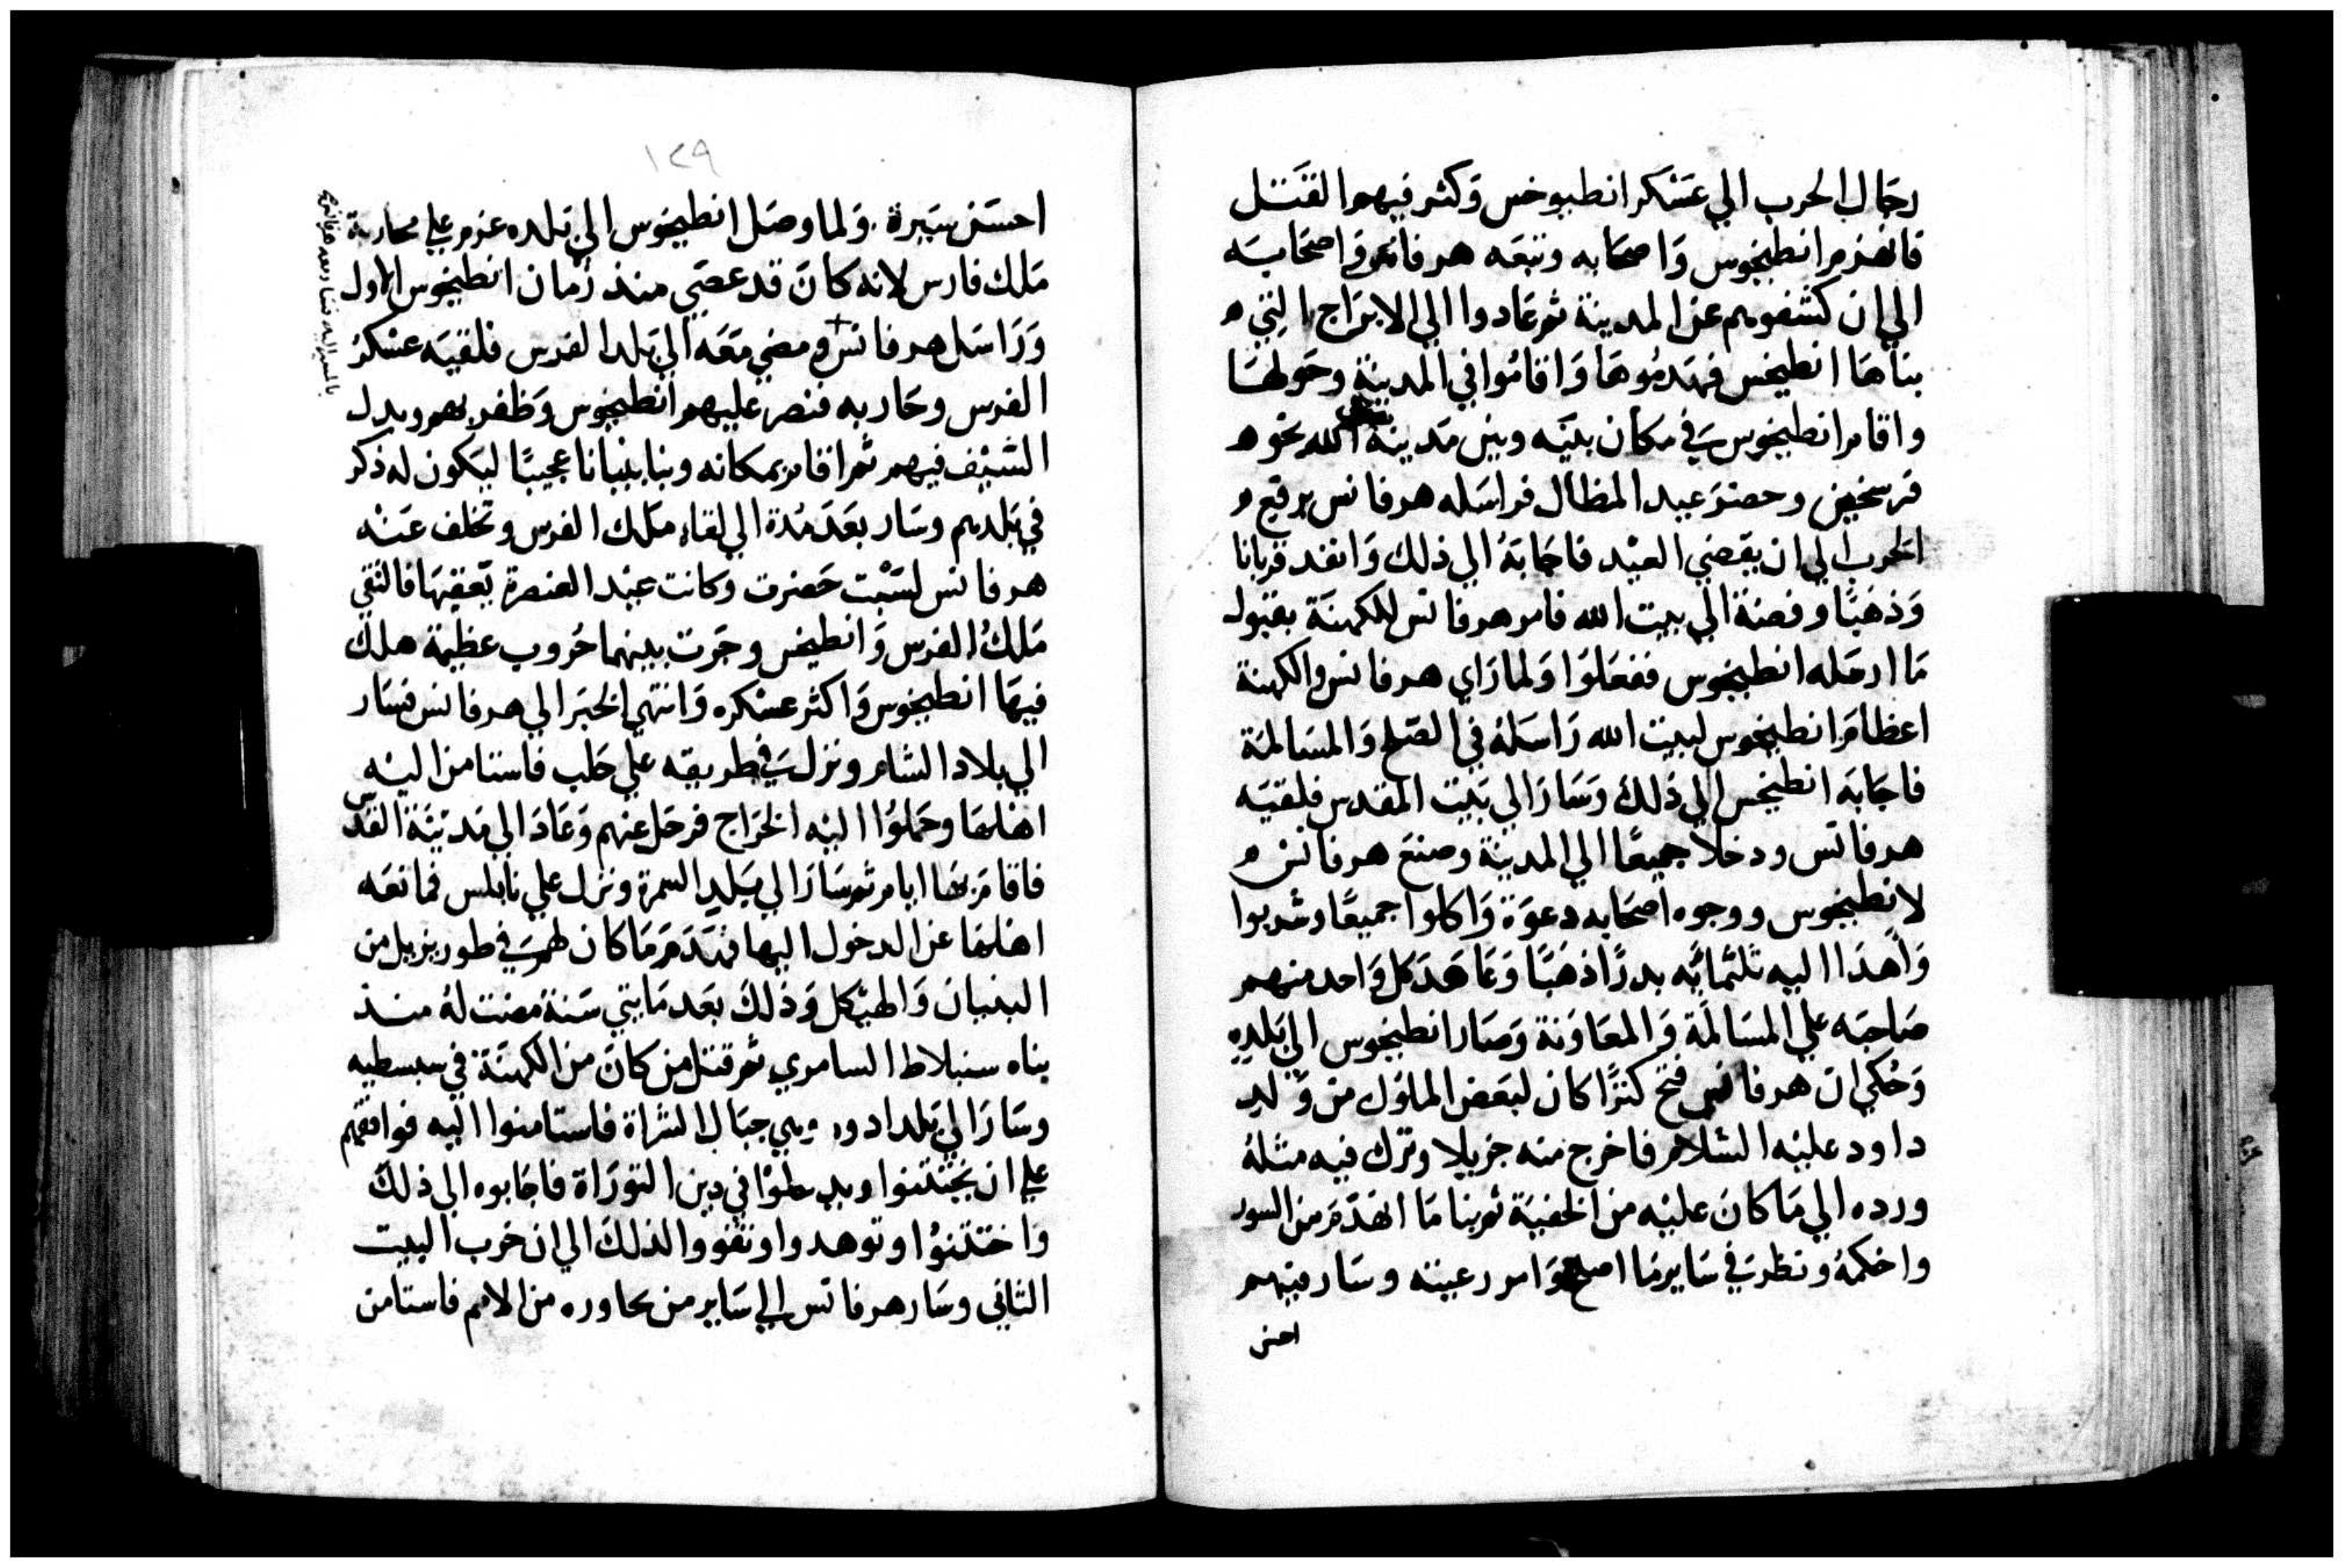 رجال الحرب الي عسكر انطيوخس وكثر فيهم القتل
فانهزم انطيخوس واصحابه وتبعه هرقانس واصحابه
الي ان كشفوهم عن المدينة ثم عادوا الي الابراج التي
بناها انطيخس فهدموها واقاموا في المدينة وحولها
واقام انطيخوس في مكان بينه وبين مدينة الله نحو
فرسخين وحضر عيد المظال فراسله هرقانس برفع
الحرب الي ان يقضي العيد فاجابه الي ذلك وانفذ قربانا
وذهبا وفضة الي بيت الله فامر هرقانس للكهنة بقبول
ما ارسله انطيخوس ففعلوا ولما راي هرقانس والكهنة
اعظام انطيخوس لبيت الله راسله في الصلح والمسالمة
فاجابه انطيخس الي ذلك وسار الي بيت المقدس فلقيه
هرقانس ودخلا جميعا الي المدينة وصنع هرقانس
لانطيخوس ووجوه اصحابه دعوة واكلوا جميعا وشربوا
واهدا اليه تلثمائه بدرا ذهبا وعاهد كل واحد منهم
صاحبه علي المسالمة والمعاونة وصار انطيخوس الي بلده
وحكي ان هرقانس فتح كنزا كان لبعض الملوك من ولد
داود عليه السلام فاخرج منه جزيلا وترك فيه مثله
ورده الي ما كان عليه من الخفية ثم بنا ما انهدم من السور
واحكمه ونظر في ساير ما اصلح امور رعيته وسار فيهم
احسن
١٢٩
احسن سيرة. ولما وصل انطيخوس الي بلده عزم علي محاربة
ملك فارس لانه كان قد عصي منذ زمان انطيخوس الاول
وراسل هرقانس ومضي معه الي بلد الفرس فلقيه عسكر
الفرس وحاربه فنصر عليهم انطيخوس وظفر بهم وبدل
السيف فيهم ثم اقام بمكانه وبنا بنيانا عجيبا ليكون له ذكر
في بلدهم وسار بعد مدة الي لقاء ملك الفرس وتخلف عنه
هرقانس لسبت حضرت وكانت عيد العنصرة بعقبها فالتقي
ملك الفرس وانطيخس وجرت بينهما حروب عظيمة هلك
فيها انطيخوس واكثر عسكره وانتهي الخبر الي هرقانس فسار
الي بلاد الشام ونزل في طريقه علي حلب فاستامن اليه
اهلها وحملوا اليه الخراج فرحل عنهم وعاد الي مدينة القدس
فاقام بها ايام ثم سار الي بلد السمرة ونزل علي نابلس فمانعه
اهلها عن الدخول اليها فهدم ما كان لهم في طور بزيل من
البنيان والهيكل وذلك بعد مايتي سنة مضت له منذ
بناه سنبلاط السامري ثم قتل من كان من الكهنة في سبسطيه
وسار الي بلد ادوم وهي جبال الشراة فاستامنوا اليه فوافقهم
علي ان يختتنوا ويدخلوا في دين التوراة فاجابوه الي ذلك
واختتنوا وتوهدوا وبقوا لذلك الي ان خرب البيت
الثاني وسار هرقانس الي ساير من يجاوره من الامم فاستامن